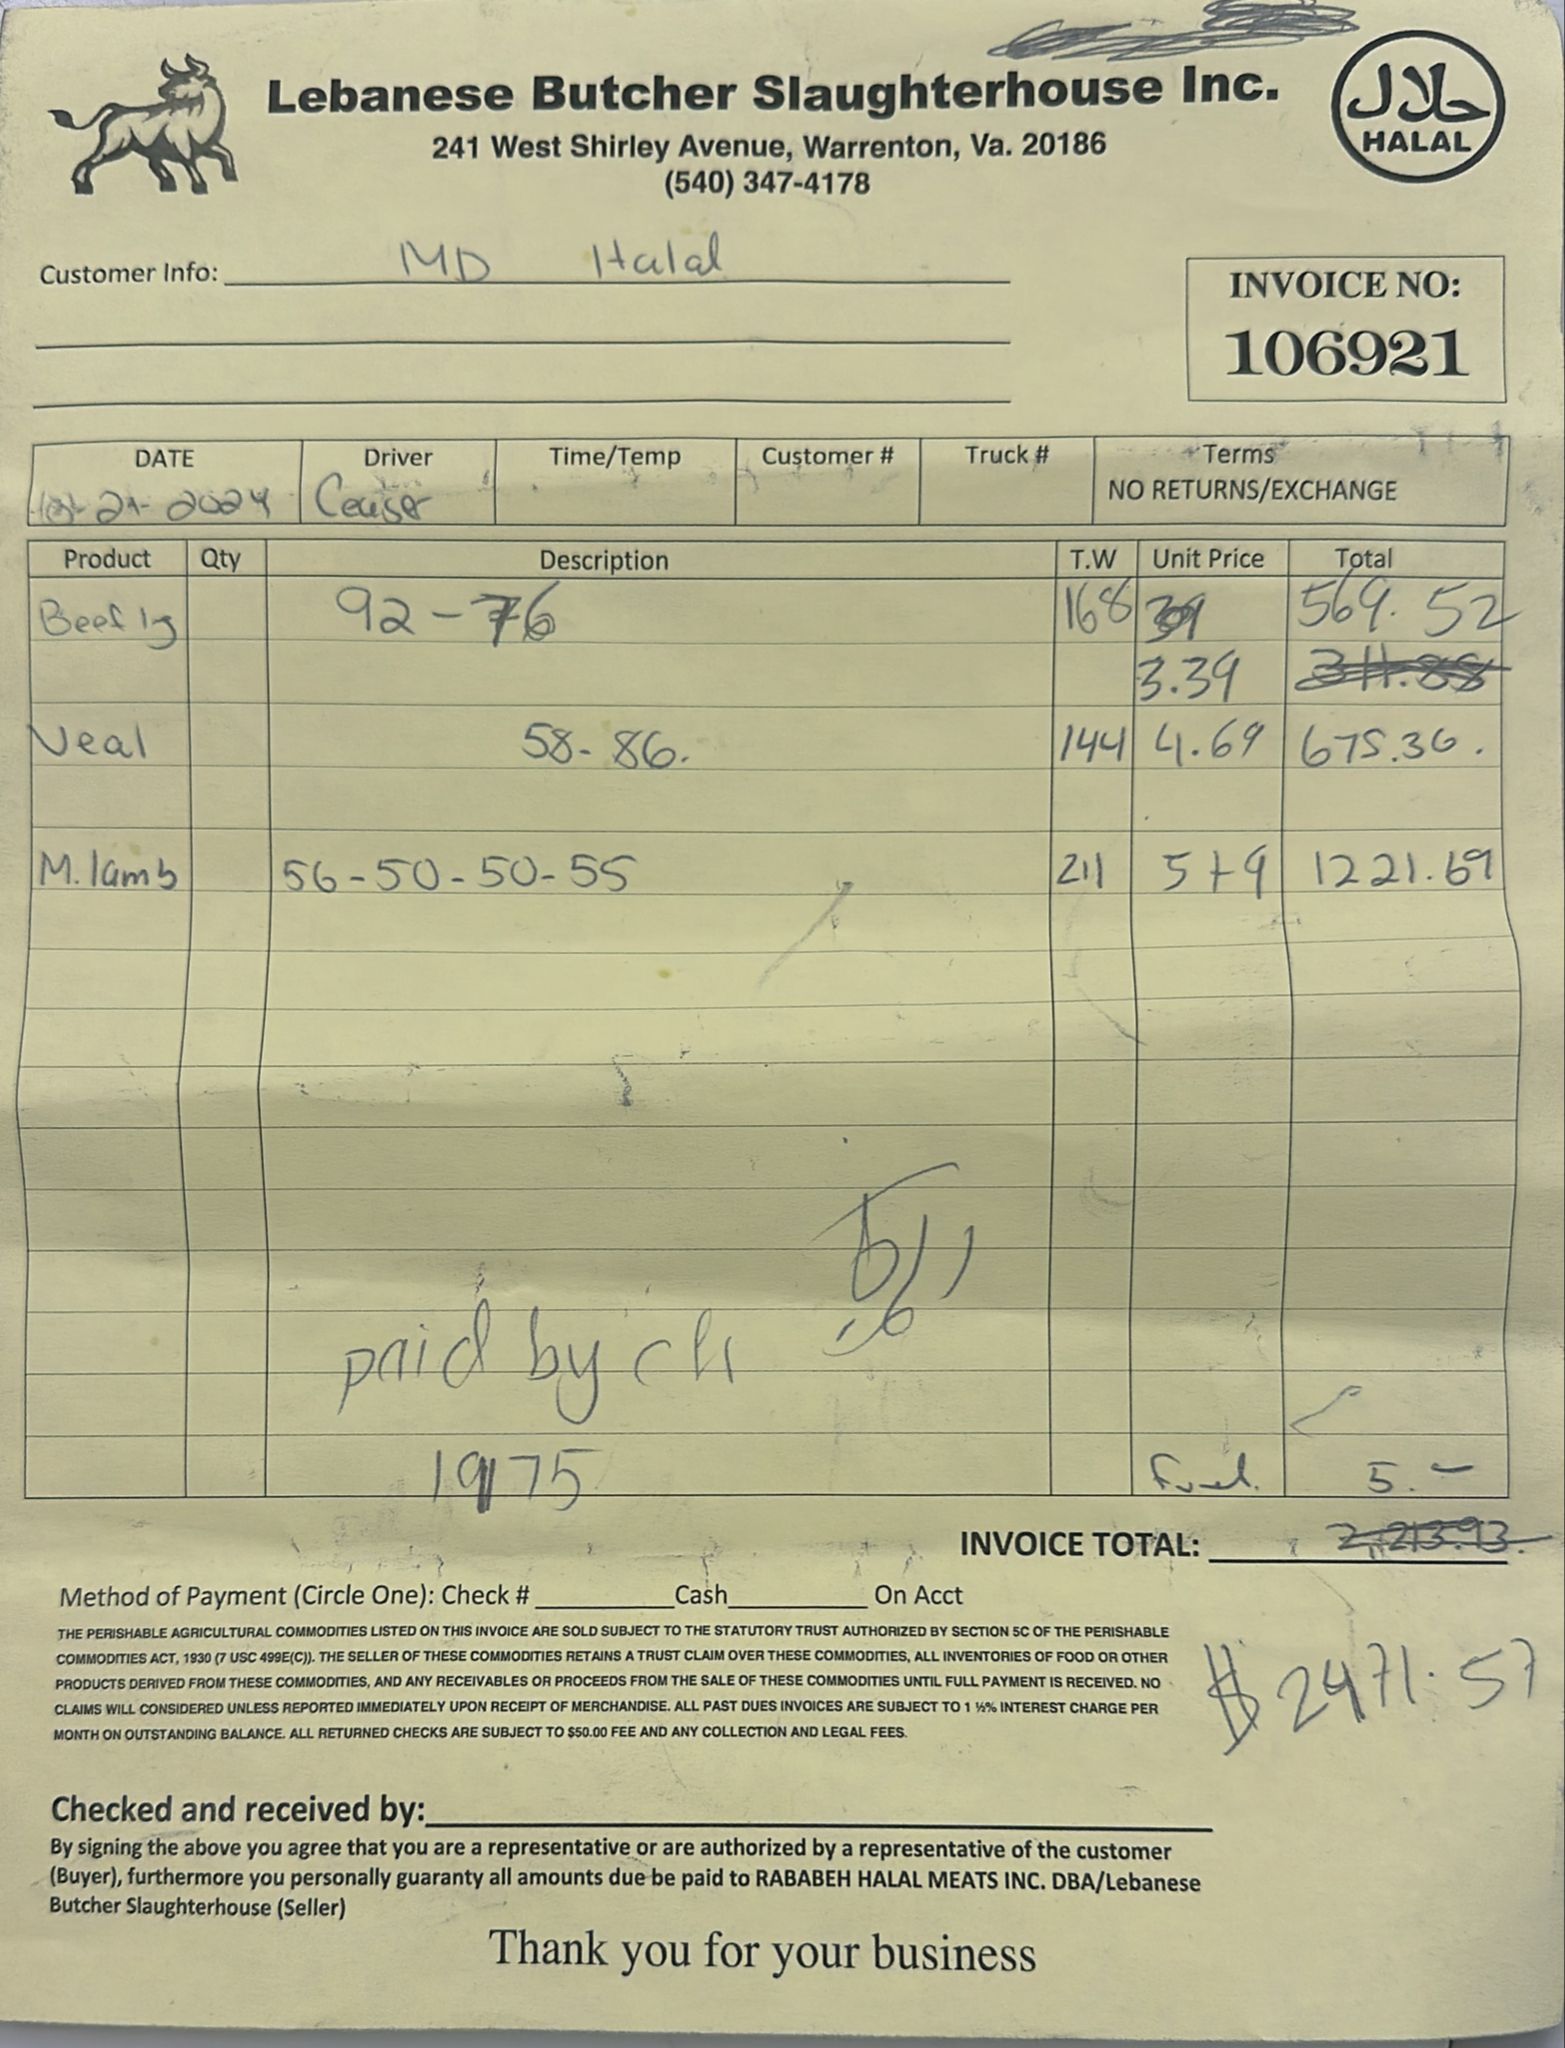 Lebanese Butcher Slaughterhouse Inc.
241 West Shirley Avenue, Warrenton, Va. 20186
(540) 347-4178
حلال
HALAL
Customer Info: MD Halal
INVOICE NO:
106921
DATE Driver Time/Temp Customer # Truck # Terms
21-2024 NO RETURNS/EXCHANGE
Product Qty Description T.W Unit Price Total
Beef lg 92-76 168 569.52
3.39 311.88
Veal 58-86. 144 4.69 675.36.
M.lamb 56-50-50-55 211 579 1221.69
paid by ch
1975 Fuel. 5.-
INVOICE TOTAL: 2,213.93.
Method of Payment (Circle One): Check # Cash On Acct
THE PERISHABLE AGRICULTURAL COMMODITIES LISTED ON THIS INVOICE ARE SOLD SUBJECT TO THE STATUTORY TRUST AUTHORIZED BY SECTION 5C OF THE PERISHABLE
COMMODITIES ACT, 1930 (7 USC 499E(C)). THE SELLER OF THESE COMMODITIES RETAINS A TRUST CLAIM OVER THESE COMMODITIES, ALL INVENTORIES OF FOOD OR OTHER
PRODUCTS DERIVED FROM THESE COMMODITIES, AND ANY RECEIVABLES OR PROCEEDS FROM THE SALE OF THESE COMMODITIES UNTIL FULL PAYMENT IS RECEIVED. NO
CLAIMS WILL CONSIDERED UNLESS REPORTED IMMEDIATELY UPON RECEIPT OF MERCHANDISE. ALL PAST DUES INVOICES ARE SUBJECT TO 1 ½% INTEREST CHARGE PER
MONTH ON OUTSTANDING BALANCE. ALL RETURNED CHECKS ARE SUBJECT TO $50.00 FEE AND ANY COLLECTION AND LEGAL FEES.
$2471.57
Checked and received by:
By signing the above you agree that you are a representative or are authorized by a representative of the customer
(Buyer), furthermore you personally guaranty all amounts due be paid to RABABEH HALAL MEATS INC. DBA/Lebanese
Butcher Slaughterhouse (Seller)
Thank you for your business